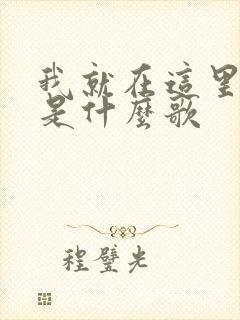 我就在這里
是什麼歌
程璧光